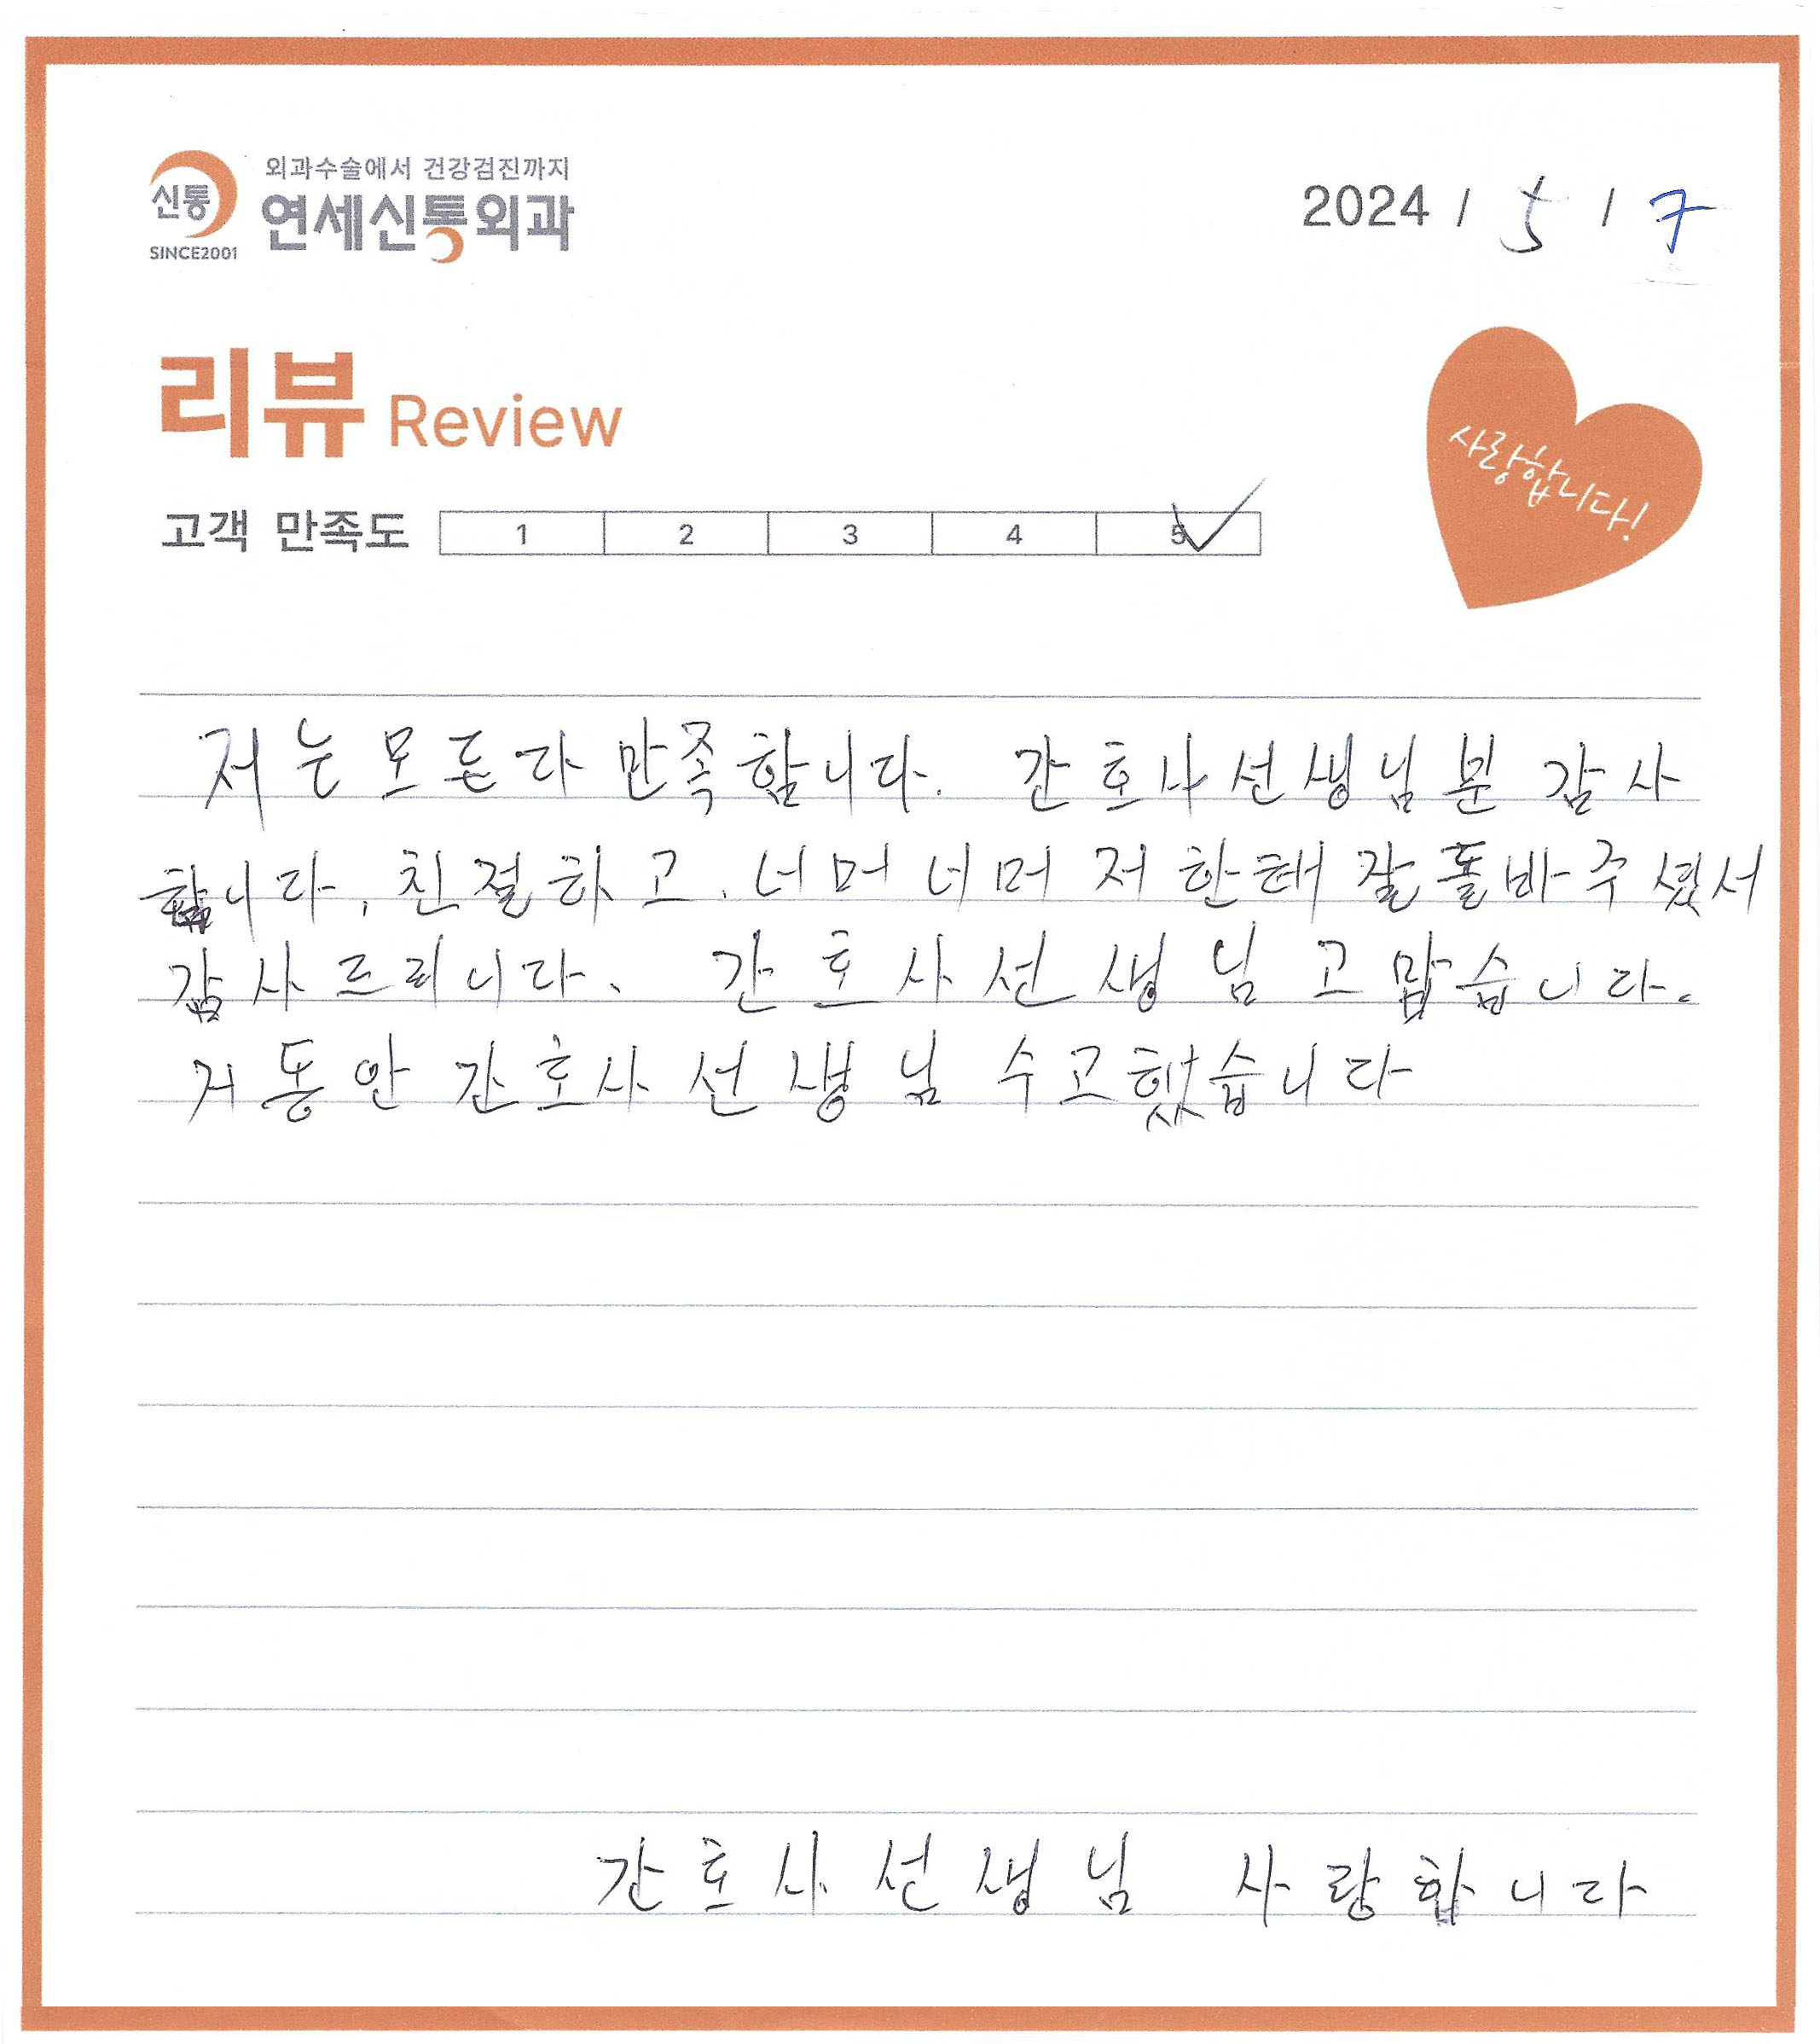 외과수술에서 건강검진까지
신통 연세신통외과
SINCE2001
2024 / 5 / 7
리뷰 Review
사랑합니다!
고객 만족도 1 2 3 4 5
저는 모든다 만족합니다. 간호사선생님분 감사
합니다, 친절하고. 너머너머 저한태 잘돌바주셨서
감사르리니다. 간호사선생님 고맙습니다.
거동안 간호사선생님 수고했습니다
간호사선생님 사랑합니다